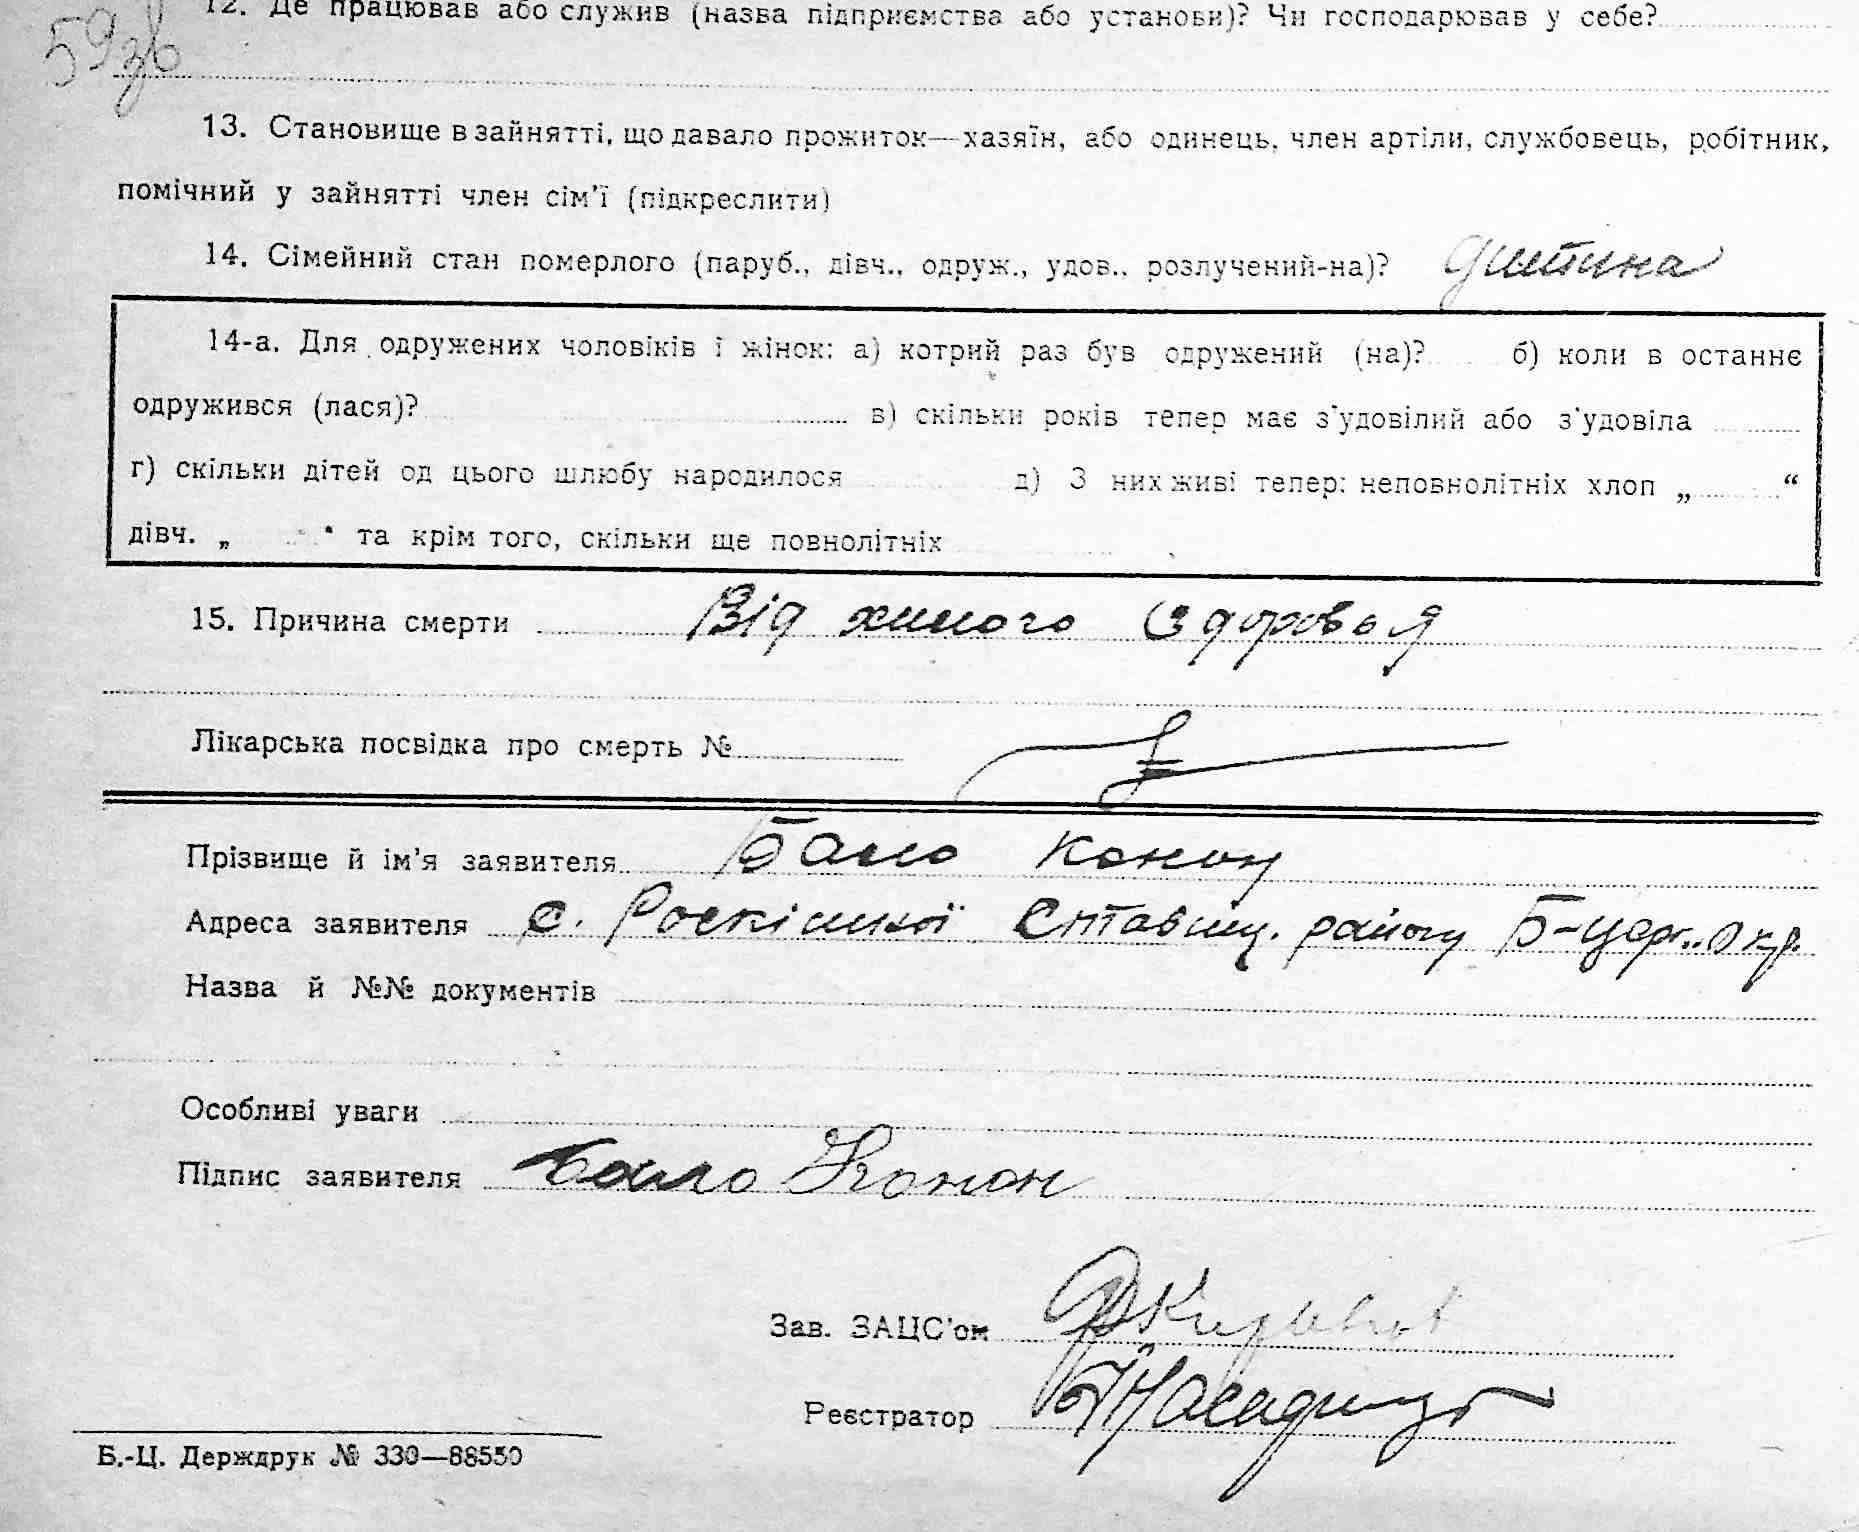 12. Де працював або служив (назва підприємства або установи)? Чи господарював у себе?
59зв
13. Становище в зайнятті, що давало прожиток—хазяїн, або одинець, член артіли, службовець, робітник,
помічний у зайнятті член сім'ї (підкреслити)
14. Сімейний стан померлого (паруб., дівч., одруж., удов.. розлучений-на)? дитина
14-а. Для одружених чоловіків і жінок: а) котрий раз був одружений (на)? б) коли в останнє
одружився (лася)? в) скільки років тепер має з'удовілий або з'удовіла
г) скільки дітей од цього шлюбу народилося д) З них живі тепер: неповнолітніх хлоп „ “
дівч. „ “ та крім того, скільки ще повнолітніх
15. Причина смерти Від хилого здоровья
Лікарська посвідка про смерть №
Прізвище й ім'я заявителя Бало Конон
Адреса заявителя с. Роскішної Ставищ. району Б-Церк. Окр.
Назва й №№ документів
Особливі уваги
Підпис заявителя Бало Конон
Зав. ЗАЦС'ом
Реєстратор
Б.-Ц. Держдрук № 330—88550